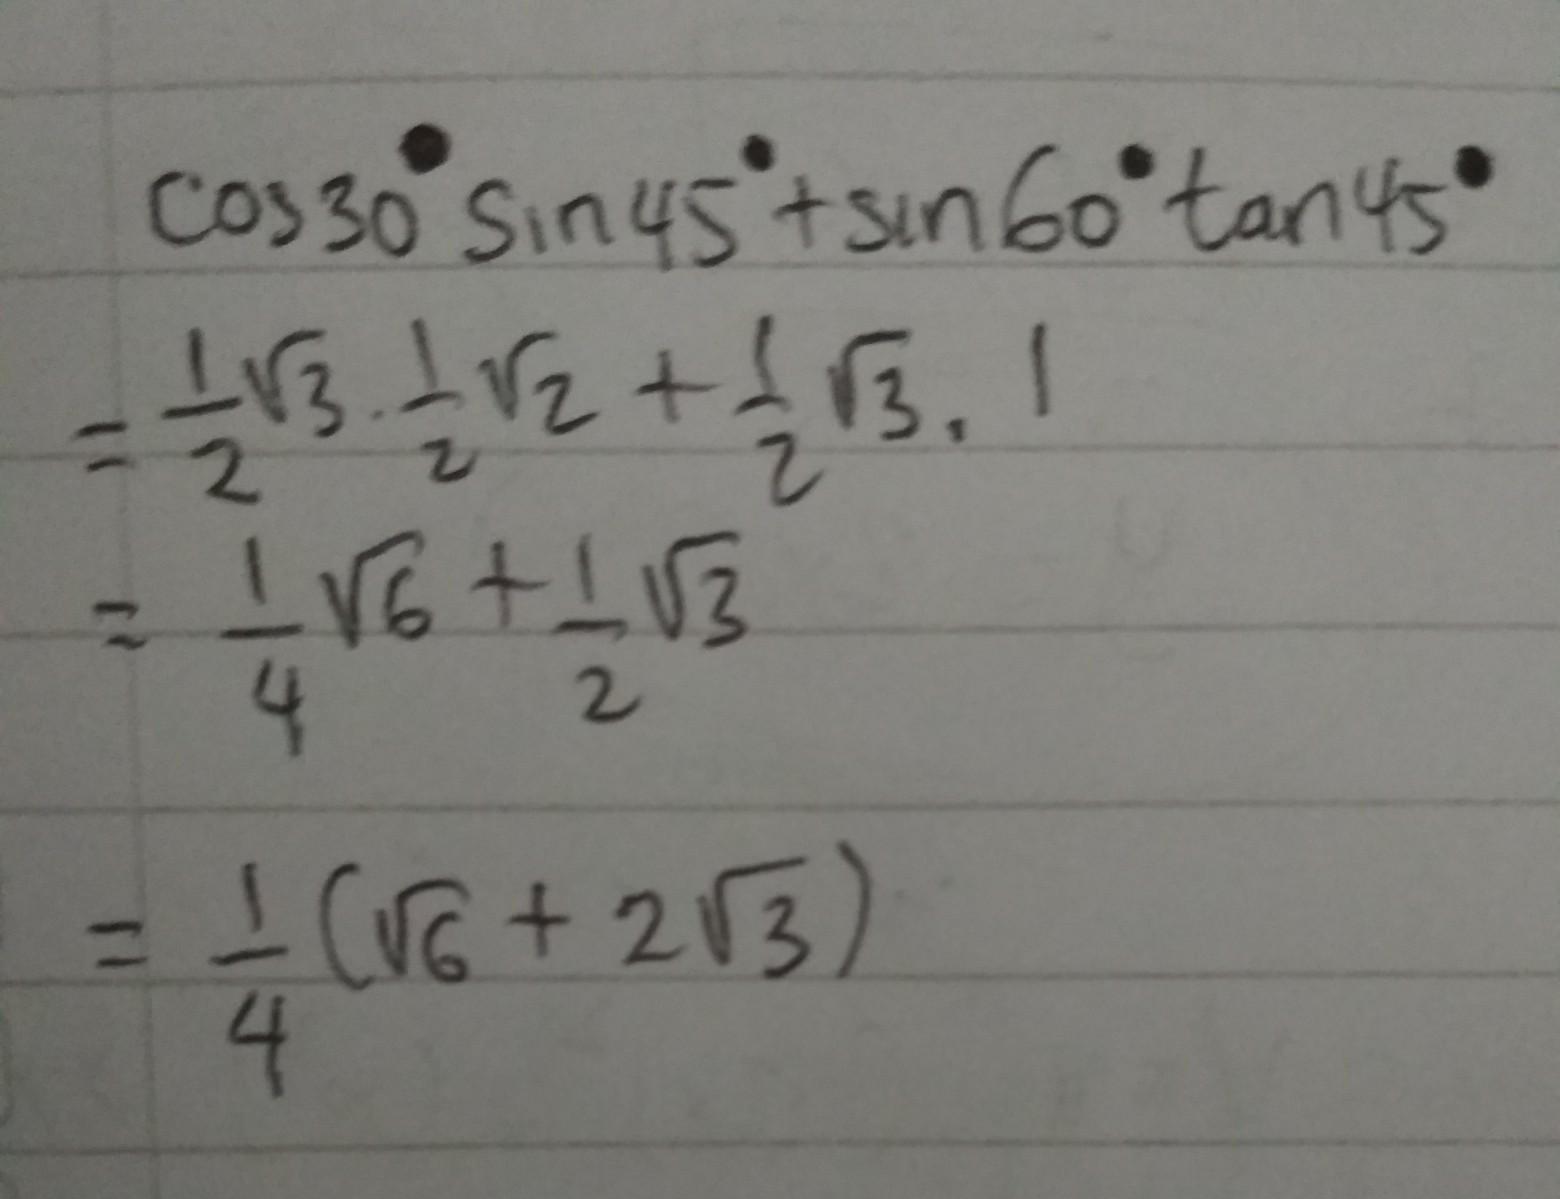 cos30° sin45° + sin60° tan45°
= 1/2 √3 . 1/2 √2 + 1/2 √3 . 1
= 1/4 √6 + 1/2 √3
= 1/4 (√6 + 2√3)